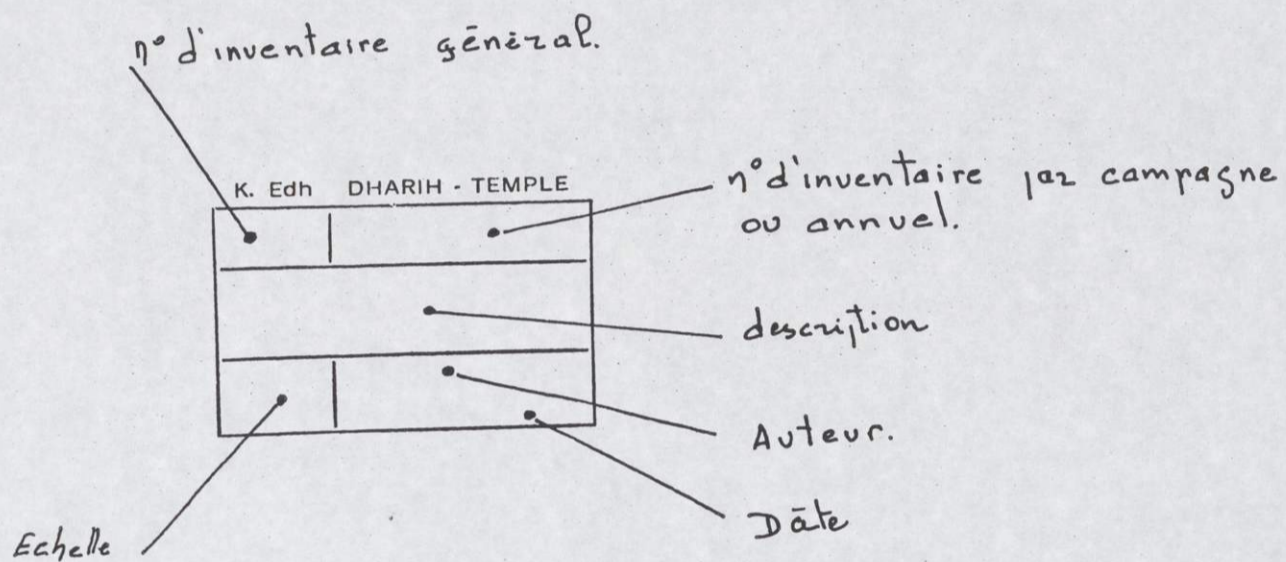 n° d'inventaire général.
K. Edh DHARIH - TEMPLE
n° d'inventaire par campagne
ou annuel.
description
Auteur.
Dâte
Echelle